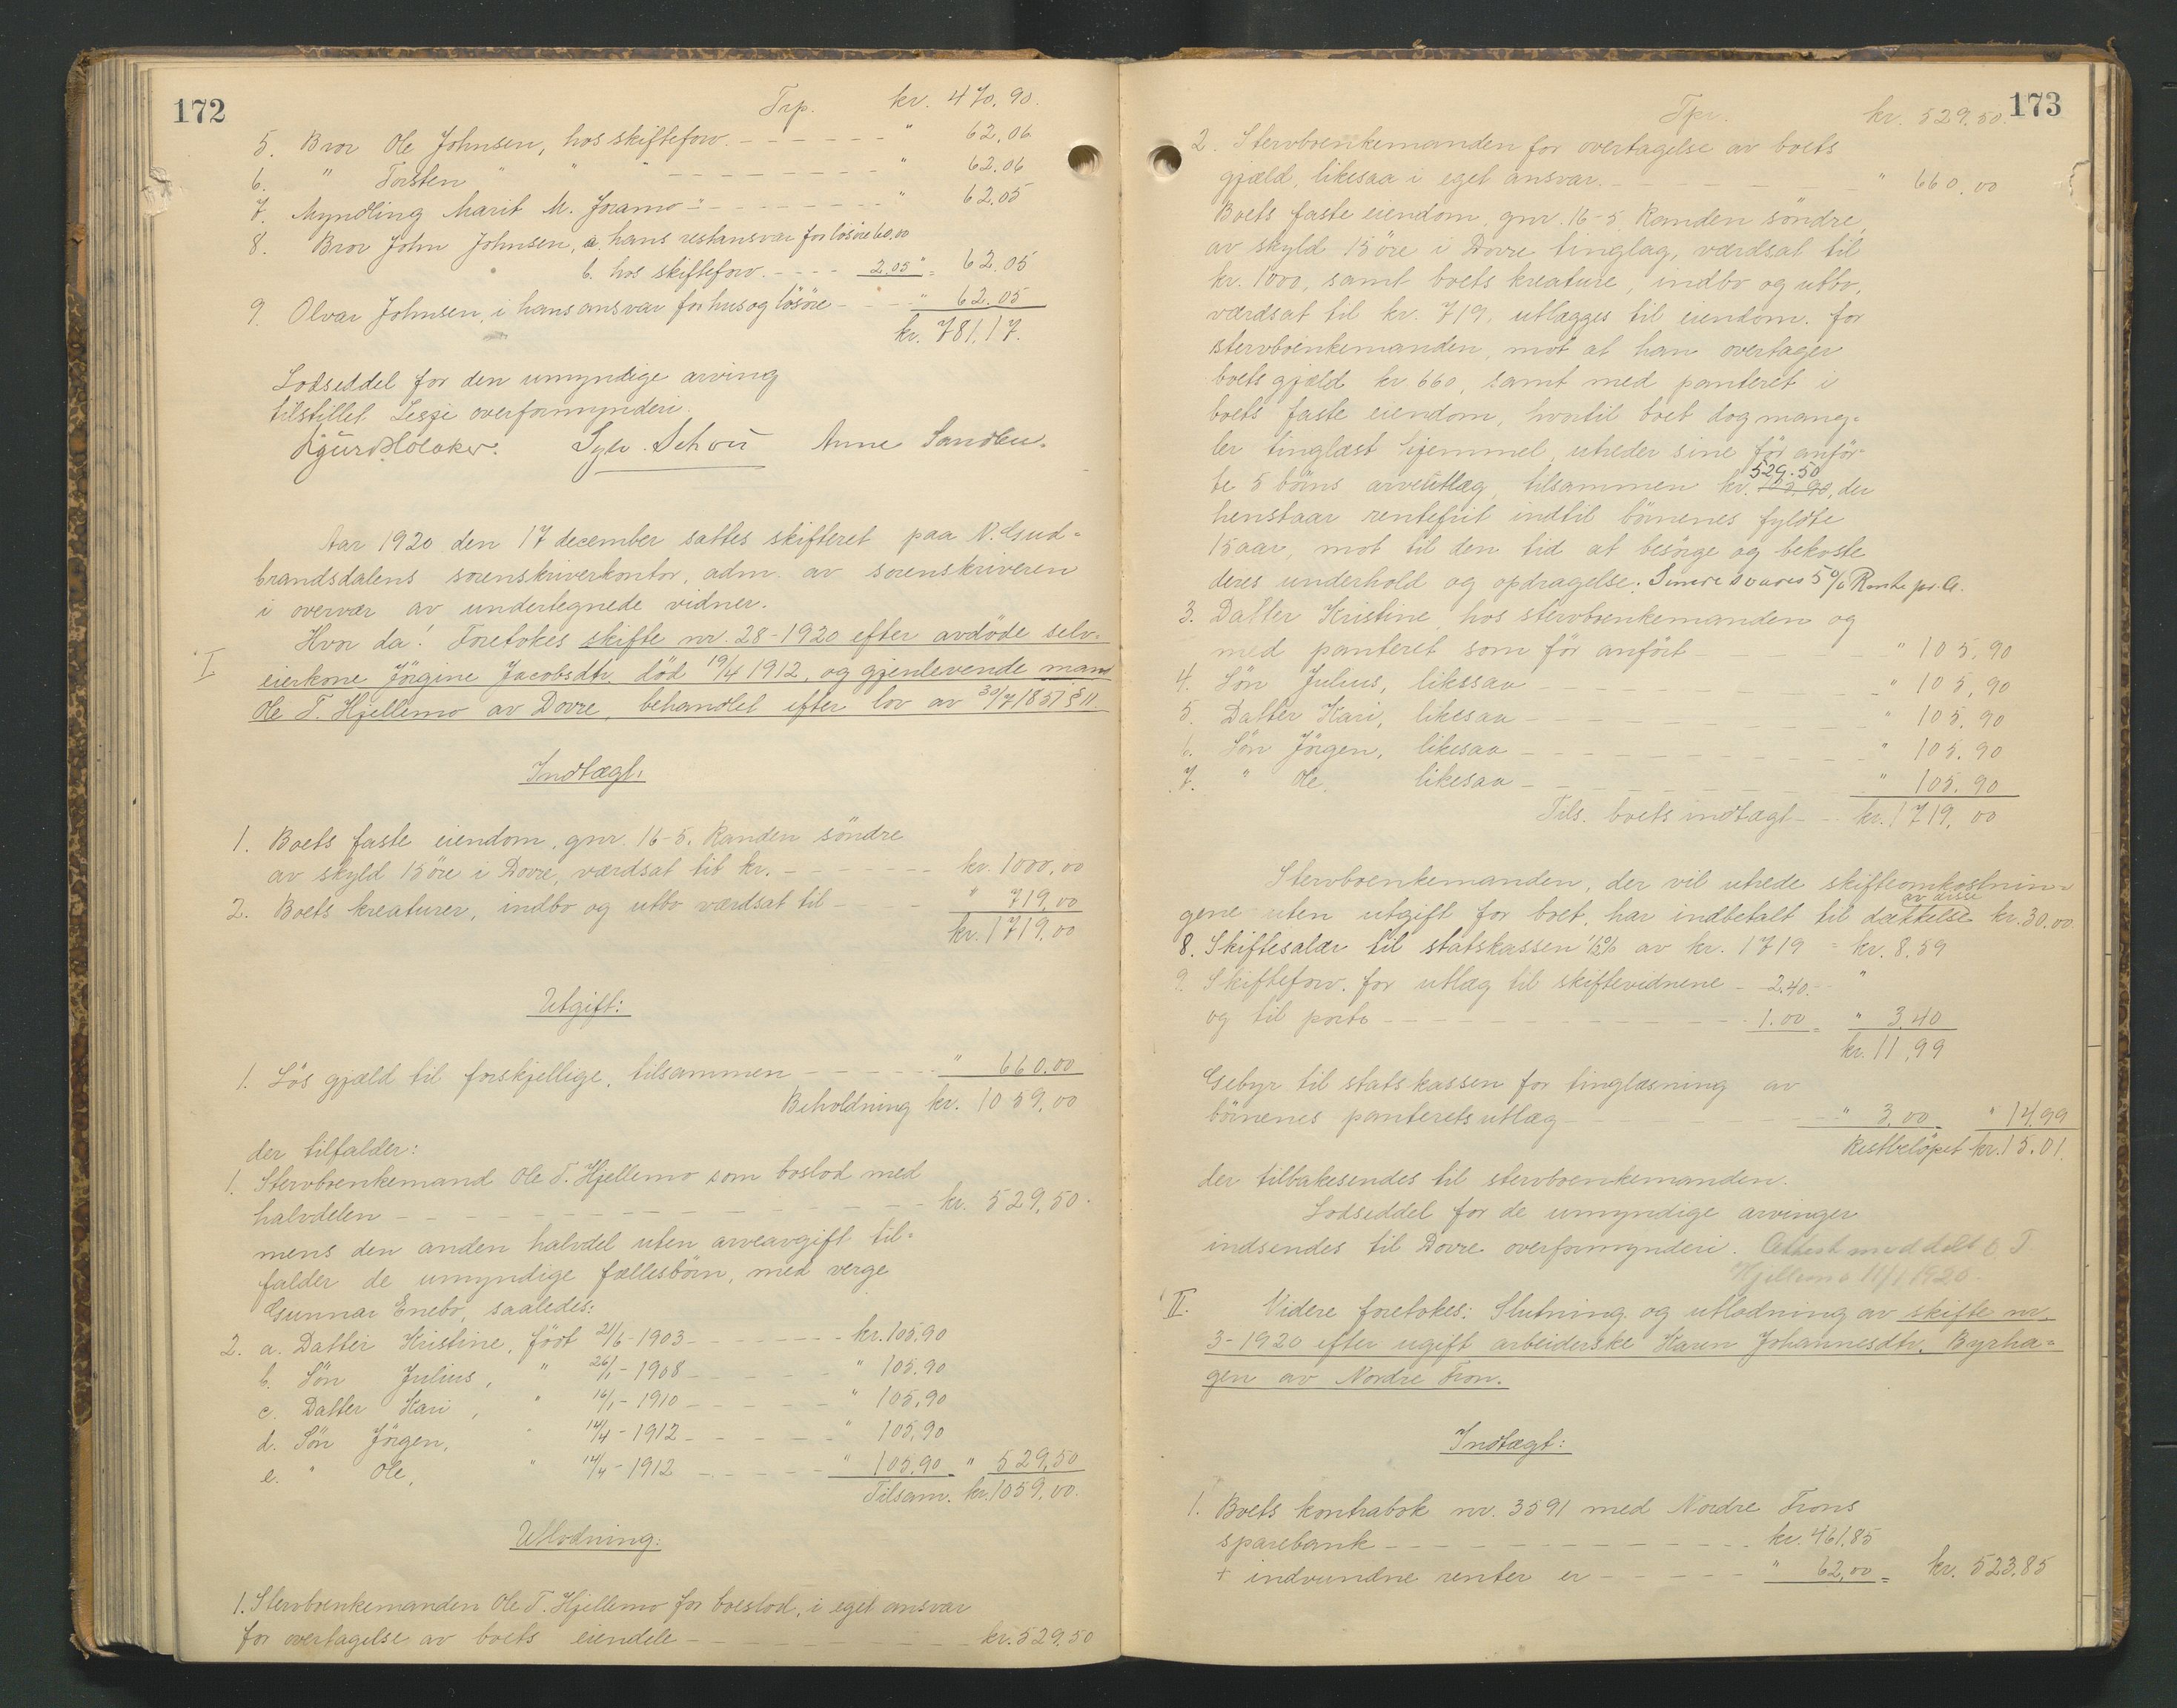 172
Trp. kr. 470.90.
5. Bror Ole Johnsen, hos skifteforv. - - - - - " 62.06
6. " Torsten " " - - - - - " 62.06
7. Myndling Marit M. Joramo " - - - - - " 62.05
8. Bror John Johnsen, a, hans restansvar for lösöre 60.00
b. hos skifteforv. - - - - 2.05 " = 62.05
9. Olvar Johnsen, i hans ansvar for hus og lösöre - - - " 62.05
kr. 781.17.
Lodseddel for den umyndige arving
tilstillet Lesje overformynderi.
Anne Sandbu.
Aar 1920 den 17 december sattes skifteret paa N. Gud=
brandsdalens sorenskriverkontor, adm. av sorenskriveren
i overvær av undertegnede vidner.
Hvor da: Foretokes skifte nr. 28-1920 efter avdöde selv=
I eierkone Jörgine Jacobsdtr. död 19/4 1912, og gjenlevende mand
Ole T. Hjellemo av Dovre, behandlet efter lov av 30/7 1851 § 11.
Indtægt:
1. Boets faste eiendom, gnr. 16-5. Randen söndre
av skyld 15 öre i Dovre, værdsat til kr. - - - - - kr. 1000,00
2. Boets kreaturer, indbo og utbo værdsat til - - - - " 719,00
kr. 1719,00
Utgift:
1. Lös gjæld til forskjellige, tilsammen - - - - - " 660.00
Beholdning kr. 1059,00
der tilfalder:
1. Stervboenkemand Ole T. Hjellemo som boslod med
halvdelen - - - - - - - - kr. 529,50.
mens den anden halvdel uten arveavgift til=
falder de umyndige fællesbörn, med verge
Gunnar Enebo, saaledes:
2. a. Datter Kristine, födt 21/6 - 1903 - - - - - kr. 105.90
b. Sön Julius, " 26/1 - 1908 - - - - - " 105.90
c. Datter Kari, " 16/1 - 1910 - - - - - " 105,90
d. Sön Jörgen, " 14/4 - 1912 - - - - - " 105,90
e. " Ole, " 14/4 - 1912 - - - - - " 105.90 = " 529,50
Tilsam. kr. 1059,00.
Utlodning:
1. Stervboenkemanden Ole T. Hjellemo for boeslod, i eget ansvar
for overtagelse av boets eiendele - - - - - kr. 529,50
173
Tpr. kr. 529,50.
2. Stervboenkemanden for overtagelse av boets
gjæld, likesaa i eget ansvar. - - - - - " 660.00
Boets faste eiendom, gnr. 16-5 Randen söndre,
av skyld 15 öre i Dovre tinglag, værdsat til
kr. 1000, samt boets kreature, indbo og utbo,
værdsat til kr. 719, utlægges til eiendom. for
stervboenkemanden, mot at han overtager
boets gjæld kr 660, samt med panteret i
boets faste eiendom, hvortil boet dog mang=
ler tinglæst hjemmel, utreder sine för anför=
529.50
te 5 börns arveutlæg, tilsammen kr. , der
henstaar rentefrit indtil börnenes fyldte
15 aar, mot til den tid at besörge og bekoste
deres underhold og opdragelse. Senere svares 5% Rente pr. A.
3. Datter Kristine, hos stervboenkemanden og
med panteret som för anfört - - - - - " 105,90
4. Sön Julius, likesaa - - - - - " 105,90
5. Datter Kari, likesaa - - - - - " 105,90
6. Sön Jörgen, likesaa - - - - - " 105,90
7. " Ole, likesaa - - - - - " 105.90
Tils. boets indtægt - - kr. 1719,00
Stervboenkemanden, der vil utrede skifteomkostnin=
av disse
gene uten utgift for boet, har indbetalt til dækkelse kr. 30.00
8. Skiftesalær til statskassen 1/2% av kr. 1719 = kr. 8,59
9. Skifteforv. for utlæg til skiftevidnene - 2.40. "
og til porto - - - - - 1.00 = " 3,40
kr. 11,99
Gebyr til statskassen for tinglæsning av
börnenes panteretsutlæg - - - - - " 3,00 = " 14,99
Restbelöpet kr. 15.01.
der tilbakesendes til stervboenkemanden.
Lodseddel for de umyndige arvinger
indsendes til Dovre overformynderi. Attest meddelt O. T
Hjellemo 11/1 1926.
II. Videre foretokes: Slutning og utlodning av skifte nr.
3-1920 efter ugift arbeiderske Karen Johannesdtr. Byrha=
gen av Nordre Fron.
Indtægt:
1. Boets kontrabok nr. 3591 med Nordre Frons
sparebank - - - - - kr. 461.85
+ indvundne renter er - - - - - " 62,00 = kr. 523,85